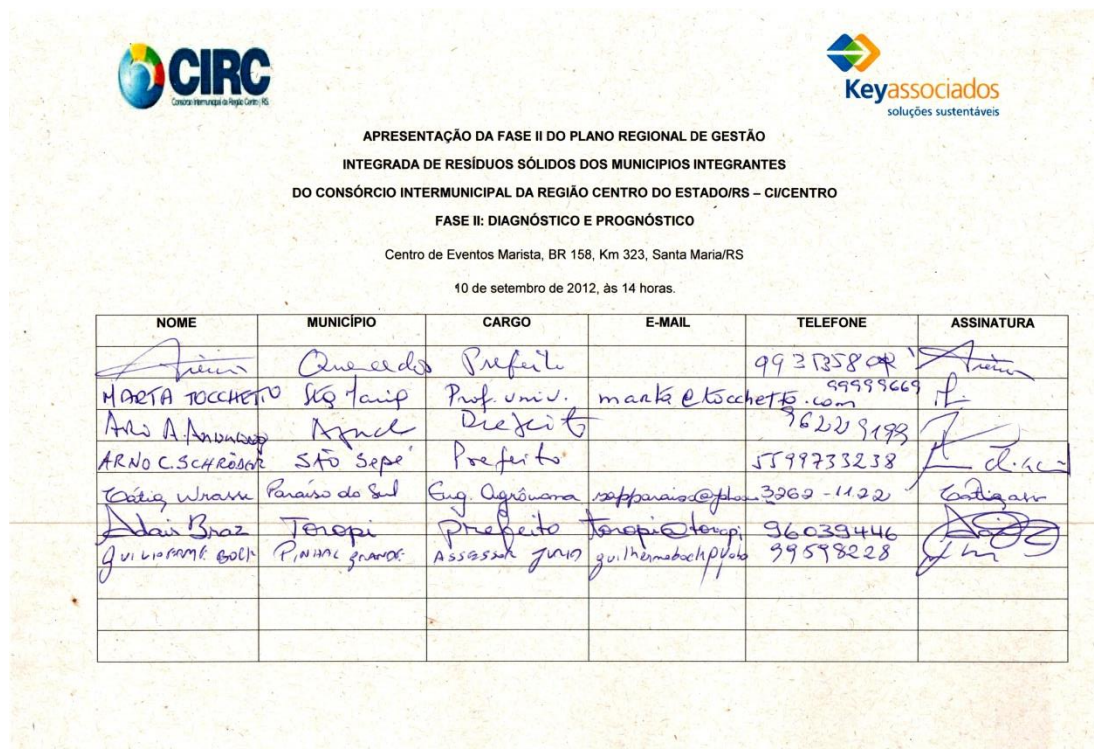 CIRC
Consórcio Intermunicipal da Região Centro / RS
Keyassociados
soluções sustentáveis
APRESENTAÇÃO DA FASE II DO PLANO REGIONAL DE GESTÃO
INTEGRADA DE RESÍDUOS SÓLIDOS DOS MUNICIPIOS INTEGRANTES
DO CONSÓRCIO INTERMUNICIPAL DA REGIÃO CENTRO DO ESTADO/RS – CI/CENTRO
FASE II: DIAGNÓSTICO E PROGNÓSTICO
Centro de Eventos Marista, BR 158, Km 323, Santa Maria/RS
10 de setembro de 2012, às 14 horas.
NOME MUNICÍPIO CARGO E-MAIL TELEFONE ASSINATURA
Prefeito
MARTA TOCCHETTO Prof. univ. marta@tocchetto.com 99999669
96229199
ARNO C. SCHRÖDER SÃO Sepé Prefeito 5599733238
Cátia Wrasse Paraíso do Sul Eng. Agrônoma 3262-1122
Adair Braz Toropi prefeito toropi@toropi 96039446
GUILHERME PINHAL GRANDE ASSESSOR 99598228